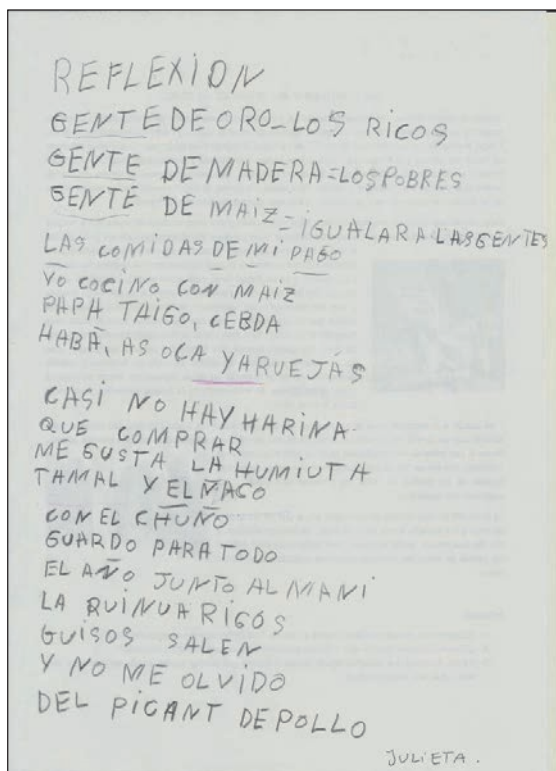 REFLEXION
GENTE DE ORO_LOS RICOS
GENTE DE MADERA=LOS POBRES
GENTE DE MAIZ=IGUAL ARA LAS GENTES
LAS COMIDAS DE MI PAGO
YO COCINO CON MAIZ
PAPA TAIGO, CEBDA
HABA, AS OCA Y ARUEJAS
CASI NO HAY HARINA
QUE COMPRAR
ME GUSTA LA HUMIUTA
TAMAL Y EL ÑACO
CON EL CHUÑO
GUARDO PARA TODO
EL AÑO JUNTO AL MANI
LA QUINUA RIGOS
GUISOS SALEN
Y NO ME OLVIDO
DEL PICANT DE POLLO
JULIETA.